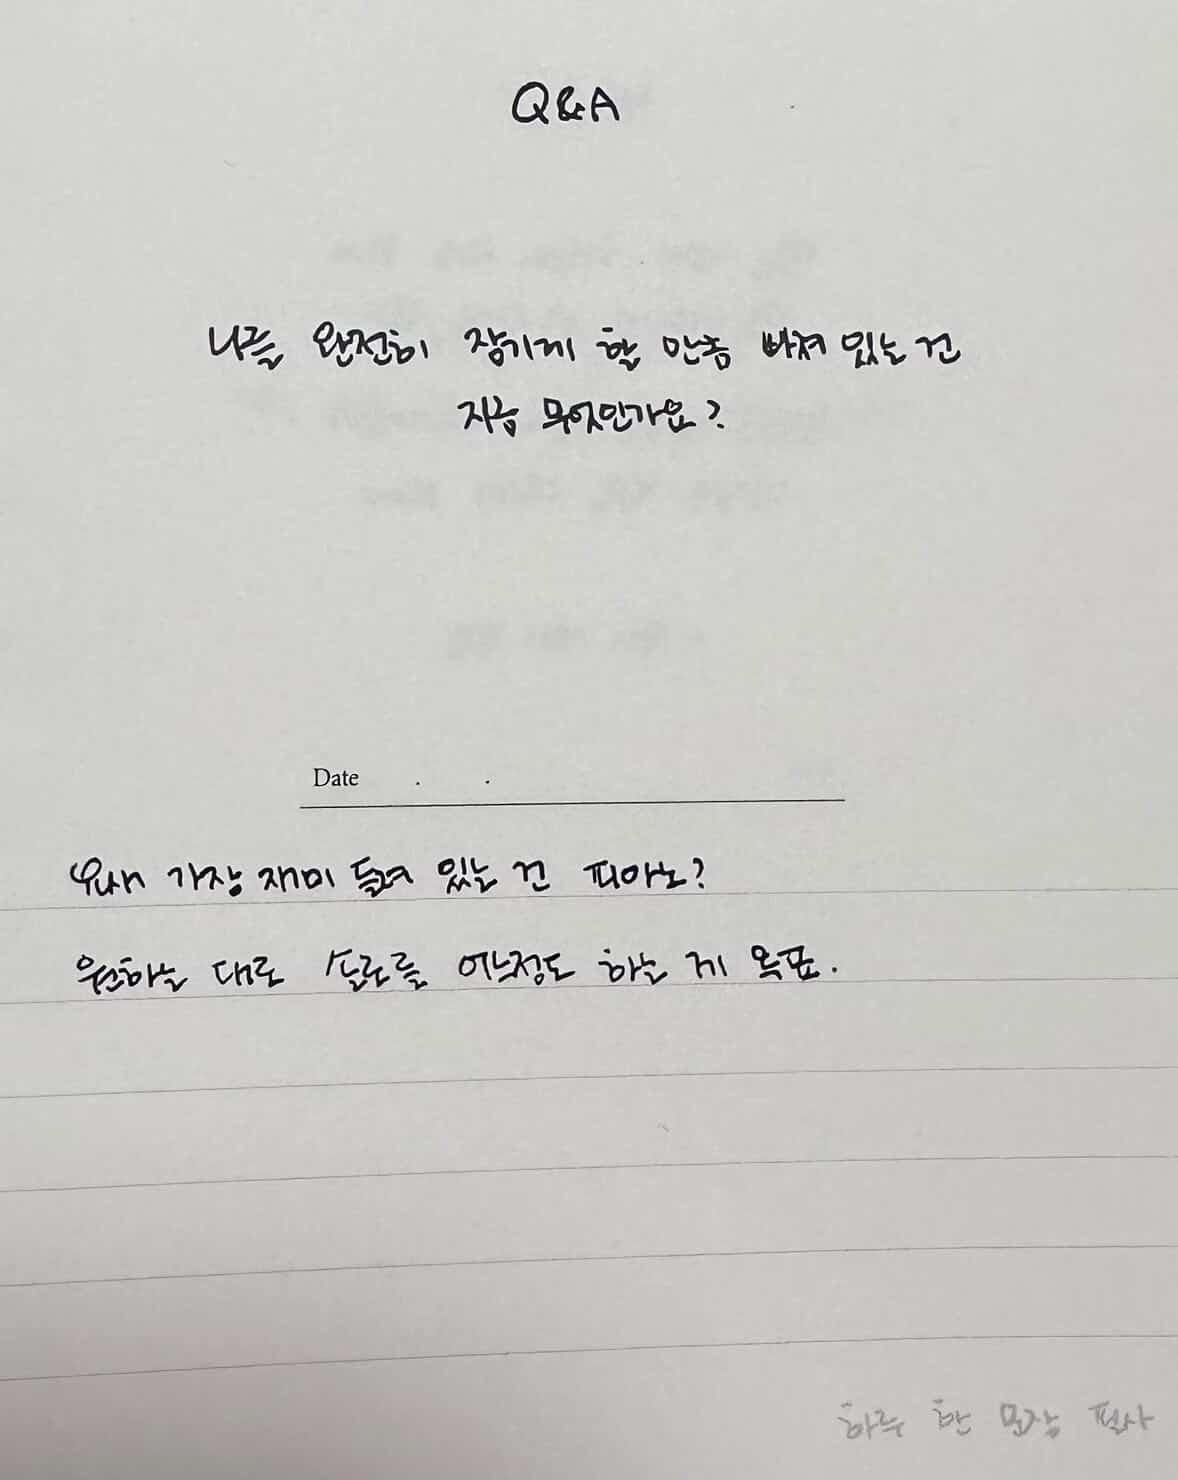 Q&A
나를 완전히 잠기게 할 만큼 빠져 있는 건
지금 무엇인가요?
Date . .
요새 가장 재미 들려 있는 건 피아노?
원하는 대로 솔로를 어느정도 하는 게 목표.
하루 한 문장 필사